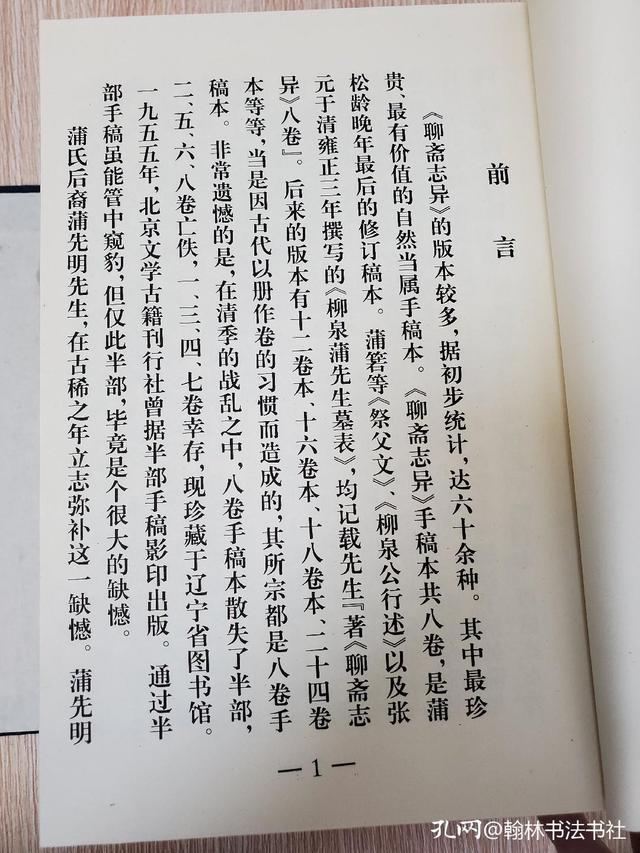 前言
《聊斋志异》的版本较多，据初步统计，达六十余种。其中最珍
贵、最有价值的自然当属手稿本。《聊斋志异》手稿本共八卷，是蒲
松龄晚年最后的修订稿本。蒲箬等《祭父文》、《柳泉公行述》以及张
元于清雍正三年撰写的《柳泉蒲先生墓表》，均记载先生『著《聊斋志
异》八卷』。后来的版本有十二卷本、十六卷本、十八卷本、二十四卷
本等等，当是因古代以册作卷的习惯而造成的，其所宗都是八卷手
稿本。非常遗憾的是，在清季的战乱之中，八卷手稿本散失了半部，
二、五、六、八卷亡佚，一、三、四、七卷幸存，现珍藏于辽宁省图书馆。
一九五五年，北京文学古籍刊行社曾据半部手稿影印出版。通过半
部手稿虽能管中窥豹，但仅此半部，毕竟是个很大的缺憾。
蒲氏后裔蒲先明先生，在古稀之年立志弥补这一缺憾。蒲先明
— 1 —
孔网@翰林书法书社